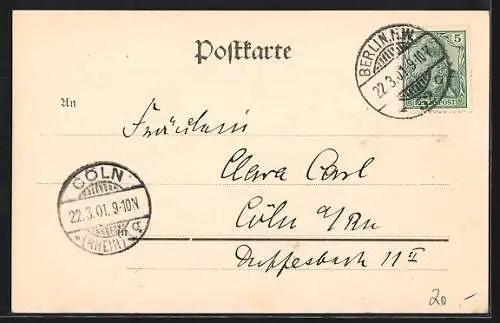 Postkarte
BERLIN, N.W.
22.3.01. 9-10V.
5
REICHSPOST
An
Fräulein
Clara Carl
Cöln a/Rh
Duffesbach 11 II
CÖLN
22.3.01. 9-10N
(RHEIN)
20.-